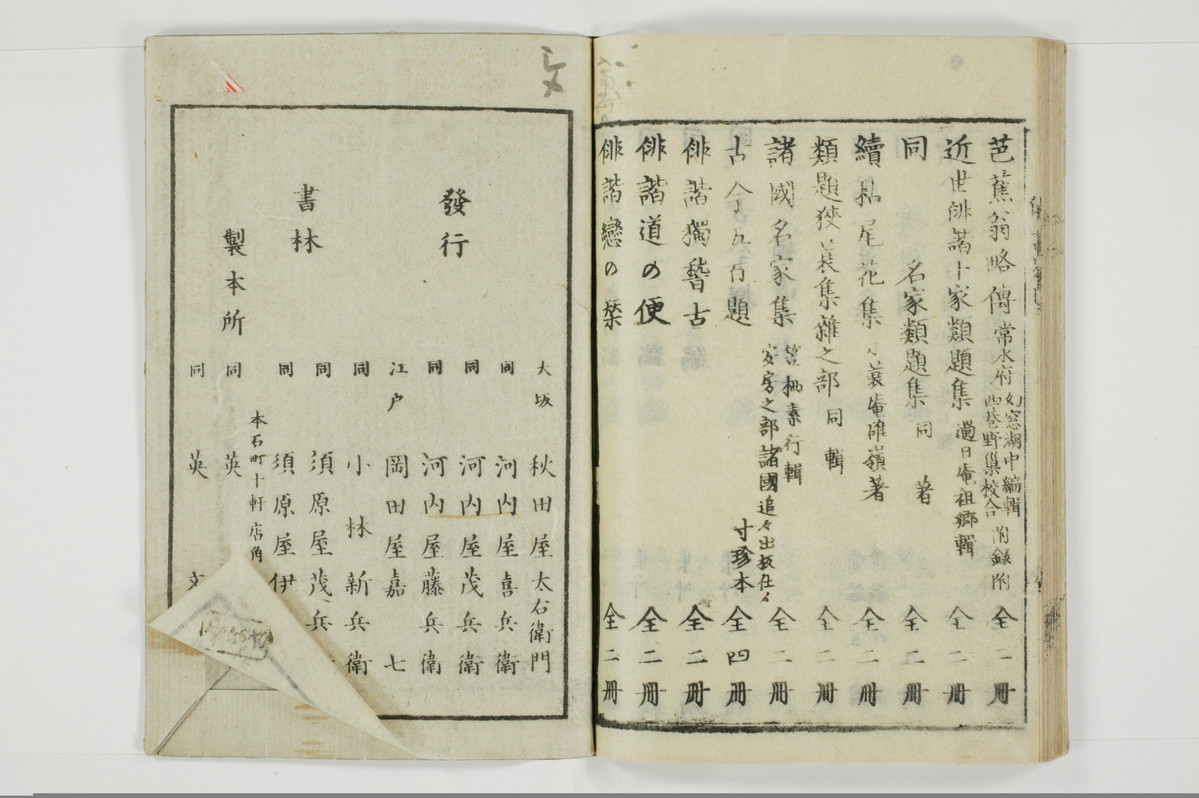 芭蕉翁略傳 常水府 幻窓湖中編輯 西巷野巣校合 附録附 全二冊
近世俳諧十家類題集 過日庵祖郷輯 全二冊
同 名家類題集 同著 全二冊
續枯尾花集 小蓑庵碓嶺著 全二冊
類題發蓑集雜之部 同輯 全二冊
諸國名家集 素行輯 安房之部諸國追々出板仕々 全二冊
古今五百題 寸珍本 全四冊
俳諧獨稽古 全二冊
俳諧道の便 全二冊
俳諧戀の栞 全二冊
文
發行
書林
製本所
大坂 秋田屋太右衛門
同 河内屋喜兵衛
同 河内屋茂兵衛
同 河内屋藤兵衛
江戸 岡田屋嘉七
同 小林新兵衛
同 須原屋茂兵
同 須原屋伊
本石町十軒店角
同 英
同 英文